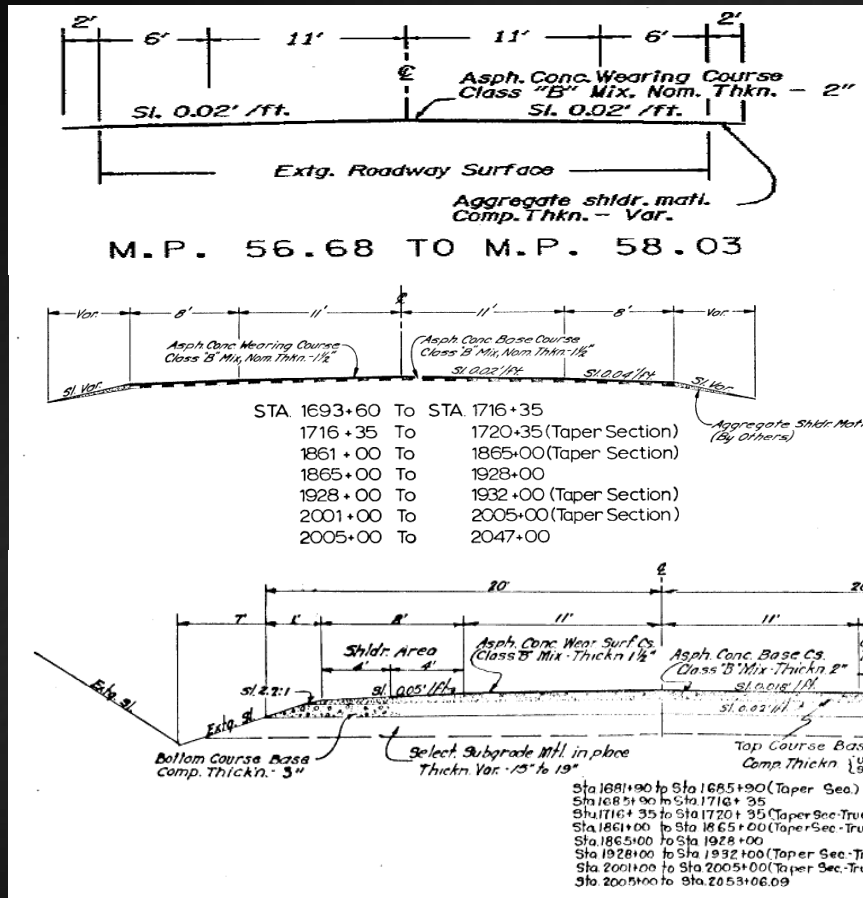 2' 6' 11' 11' 6' 2'
℄
Asph. Conc. Wearing Course
Class "B" Mix. Nom. Thkn. - 2"
Sl. 0.02' /ft. Sl. 0.02' /ft.
Extg. Roadway Surface
Aggregate shldr. matl.
Comp. Thkn. - Var.
M.P. 56.68 TO M.P. 58.03
℄
Var. 8' 11' 11' 8' Var.
Asph. Conc. Wearing Course
Class "B" Mix, Nom. Thkn.-1½"
Asph. Conc. Base Course
Class "B" Mix, Nom. Thkn.-1½"
Sl. Var. Sl. 0.02'/ft. Sl. 0.04'/ft. Sl. Var.
Aggregate Shldr. Matl
(By Others)
STA. 1693+60 To STA. 1716+35
1716+35 To 1720+35 (Taper Section)
1861+00 To 1865+00 (Taper Section)
1865+00 To 1928+00
1928+00 To 1932+00 (Taper Section)
2001+00 To 2005+00 (Taper Section)
2005+00 To 2047+00
℄
20' 20
7' 1' 8' 11' 11'
Shldr. Area
4' 4'
Asph. Conc. Wear. Surf. Cs.
Class "B" Mix - Thickn 1½"
Asph. Conc. Base Cs.
Class "B" Mix - Thickn. 2"
Extg. Sl. Extg. Sl. Sl. 2.2:1 Sl. 0.05'/ft. Sl. 0.018'/ft.
Sl. 0.02'/ft.
Bottom Course Base
Comp. Thick'n. - 3"
Select. Subgrade Mtl. in place
Thickn. Var. - 15" to 19"
Top Course Bas
Comp. Thickn
Sta 1681+90 to Sta 1685+90 (Taper Sec.)
Sta 1685+90 to Sta. 1716+35
Sta. 1716+35 to Sta 1720+35 (Taper Sec-Tru
Sta. 1861+00 to Sta 1865+00 (Taper Sec.-Tru
Sta. 1865+00 to Sta 1928+00
Sta. 1928+00 to Sta. 1932+00 (Taper Sec.-Tr
Sta. 2001+00 to Sta. 2005+00 (Taper Sec.-Tru
Sta. 2005+00 to Sta. 2053+06.09